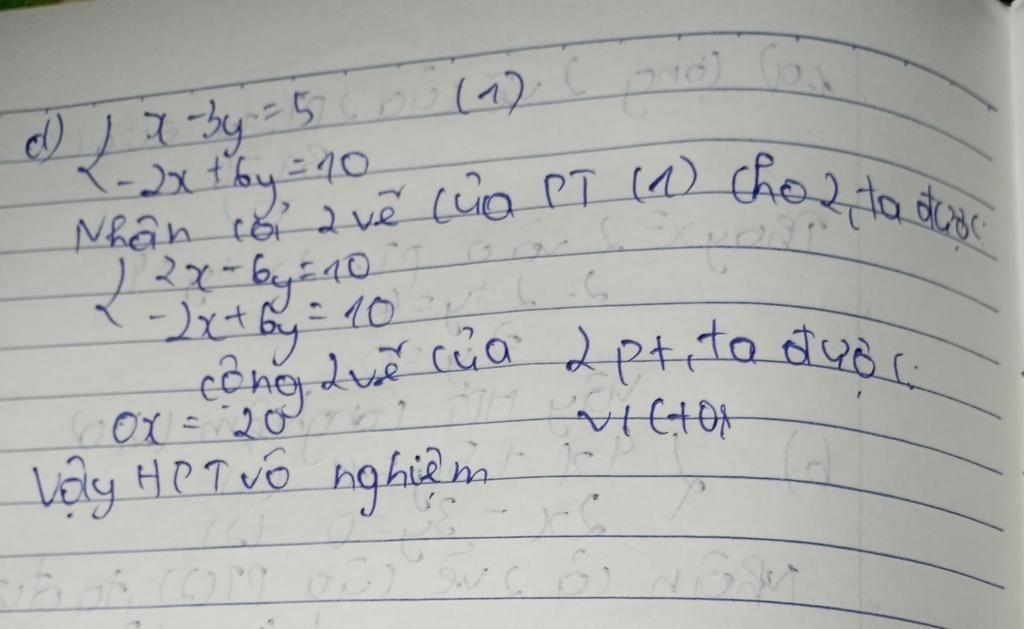 d) { x - 3y = 5 (1)
-2x + 6y = 10
Nhân cả 2 vế của PT (1) cho 2, ta được:
{ 2x - 6y = 10
-2x + 6y = 10
cộng 2 vế của 2 pt, ta được:
0x = 20
Vậy HPT vô nghiệm